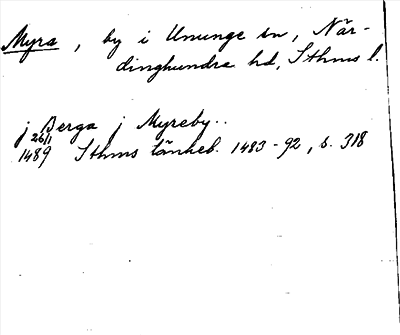 Myra, by i Ununge sn, När-
dinghundra hd, Sthms l.
j Berga j Myreby..
26/1
1489 Sthms tänkeb. 1483-92, s. 318